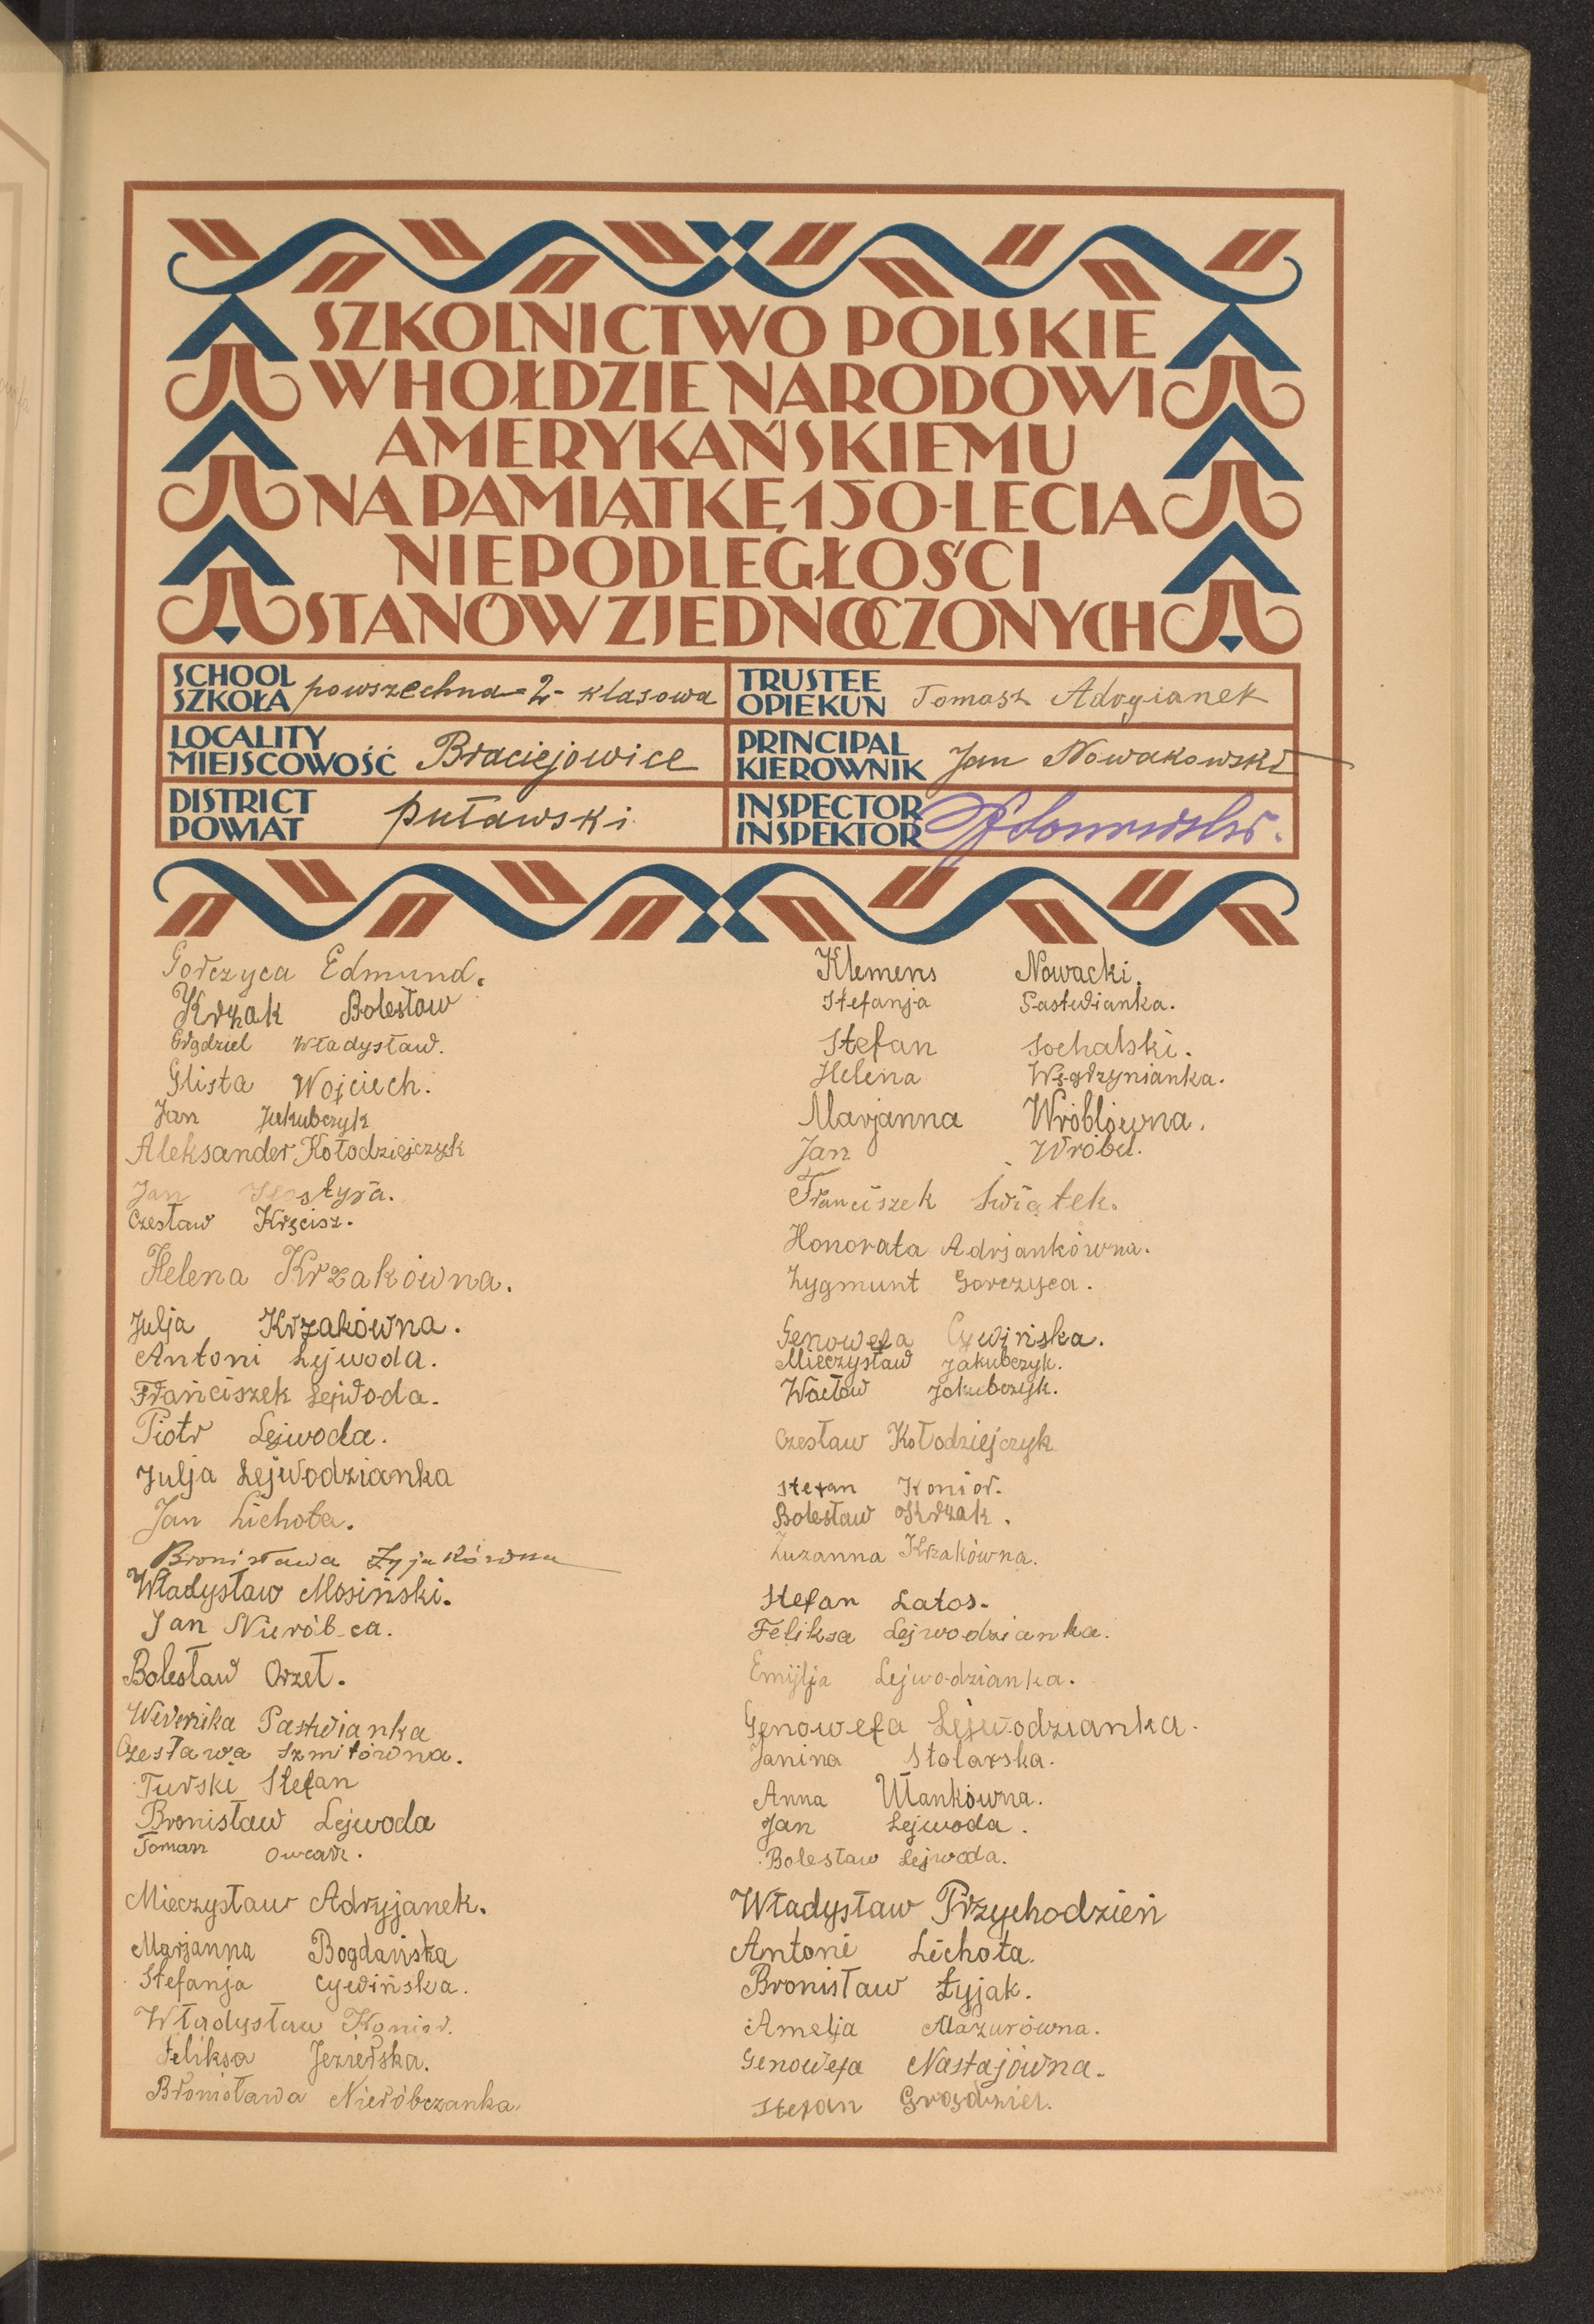 SZKOLNICTWO POLSKIE
W HOŁDZIE NARODOWI
AMERYKAŃSKIEMU
NA PAMIĄTKĘ 150-LECIA
NIEPODLEGŁOŚCI
STANÓW ZJEDNOCZONYCH
SCHOOL
SZKOŁA powszechna-2-klasowa
TRUSTEE
OPIEKUN Tomasz Adryianek
LOCALITY
MIEJSCOWOŚĆ Braciejowice
PRINCIPAL
KIEROWNIK Jan Nowakowski
DISTRICT
POWIAT puławski
INSPECTOR
INSPEKTOR
Gorczyca Edmund.
Krzak Bolesław
Władysław.
Glista Wojciech.
Jan Jakubczyk
Aleksander Kołodziejczyk
Jan
Czesław Kręcisz.
Helena Krzakówna.
Julja Krzakówna.
Antoni Lejwoda.
Franciszek Lejwoda.
Piotr Lejwoda.
Julja Lejwodzianka
Jan Lichota.
Bronisława Łyjakówna
Władysław Mosiński.
Jan Nierób-ca.
Bolesław Orzeł.
Weronika Pastwianka
Czesława Szmitówna.
Turski Stefan
Bronisław Lejwoda
Tomasz Owcarz.
Mieczysław Adryjanek.
Marjanna Bogdańska
Stefanja Cywińska.
Władysław Konior.
Feliksa Jezierska.
Bronisława Nieróbczanka.
Klemens Nowacki.
Stefanja Pastwianka.
Stefan Sochalski.
Helena Węgdzynianka.
Marjanna Wróblówna.
Jan Wróbel.
Franciszek Świątek.
Honorata Adrjankówna.
Zygmunt Gorczyca.
Genowefa Cywińska.
Mieczysław Jakubczyk.
Wacław Jakubczyk.
Czesław Kołodziejczyk
Stefan Konior.
Bolesław Krzak.
Zuzanna Krzakówna.
Stefan Latos.
Feliksa Lejwodzianka.
Emylja Lejwodzianka.
Genowefa Lejwodzianka.
Janina Stolarska.
Anna Ułankówna.
Jan Lejwoda.
Bolesław Lejwoda.
Władysław Przychodzień
Antoni Lichota.
Bronisław Łyjak.
Amelja Mazurówna.
Genowefa Nastajówna.
Stefan Grogdziel.